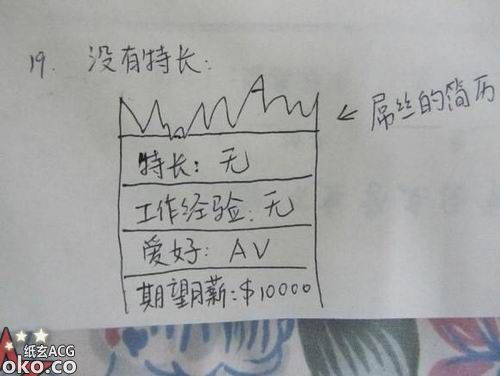 19. 没有特长:
← 屌丝的简历
特长: 无
工作经验: 无
爱好: AV
期望月薪: $10000
纸玄ACG
oko.co